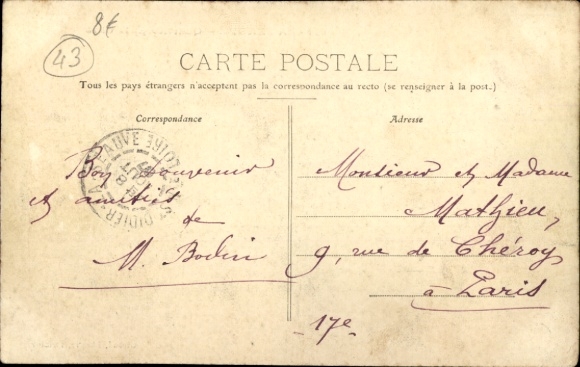 8€
43
CARTE POSTALE
Tous les pays étrangers n'acceptent pas la correspondance au recto (se renseigner à la post.)
Correspondance
Bon Souvenir
et amitiés
de
M. Bodin
Adresse
Monsieur et Madame
Mathieu,
9, rue de Chéroy
à Paris
17e
ST DIDIER LA SEAUVE
LOIRE